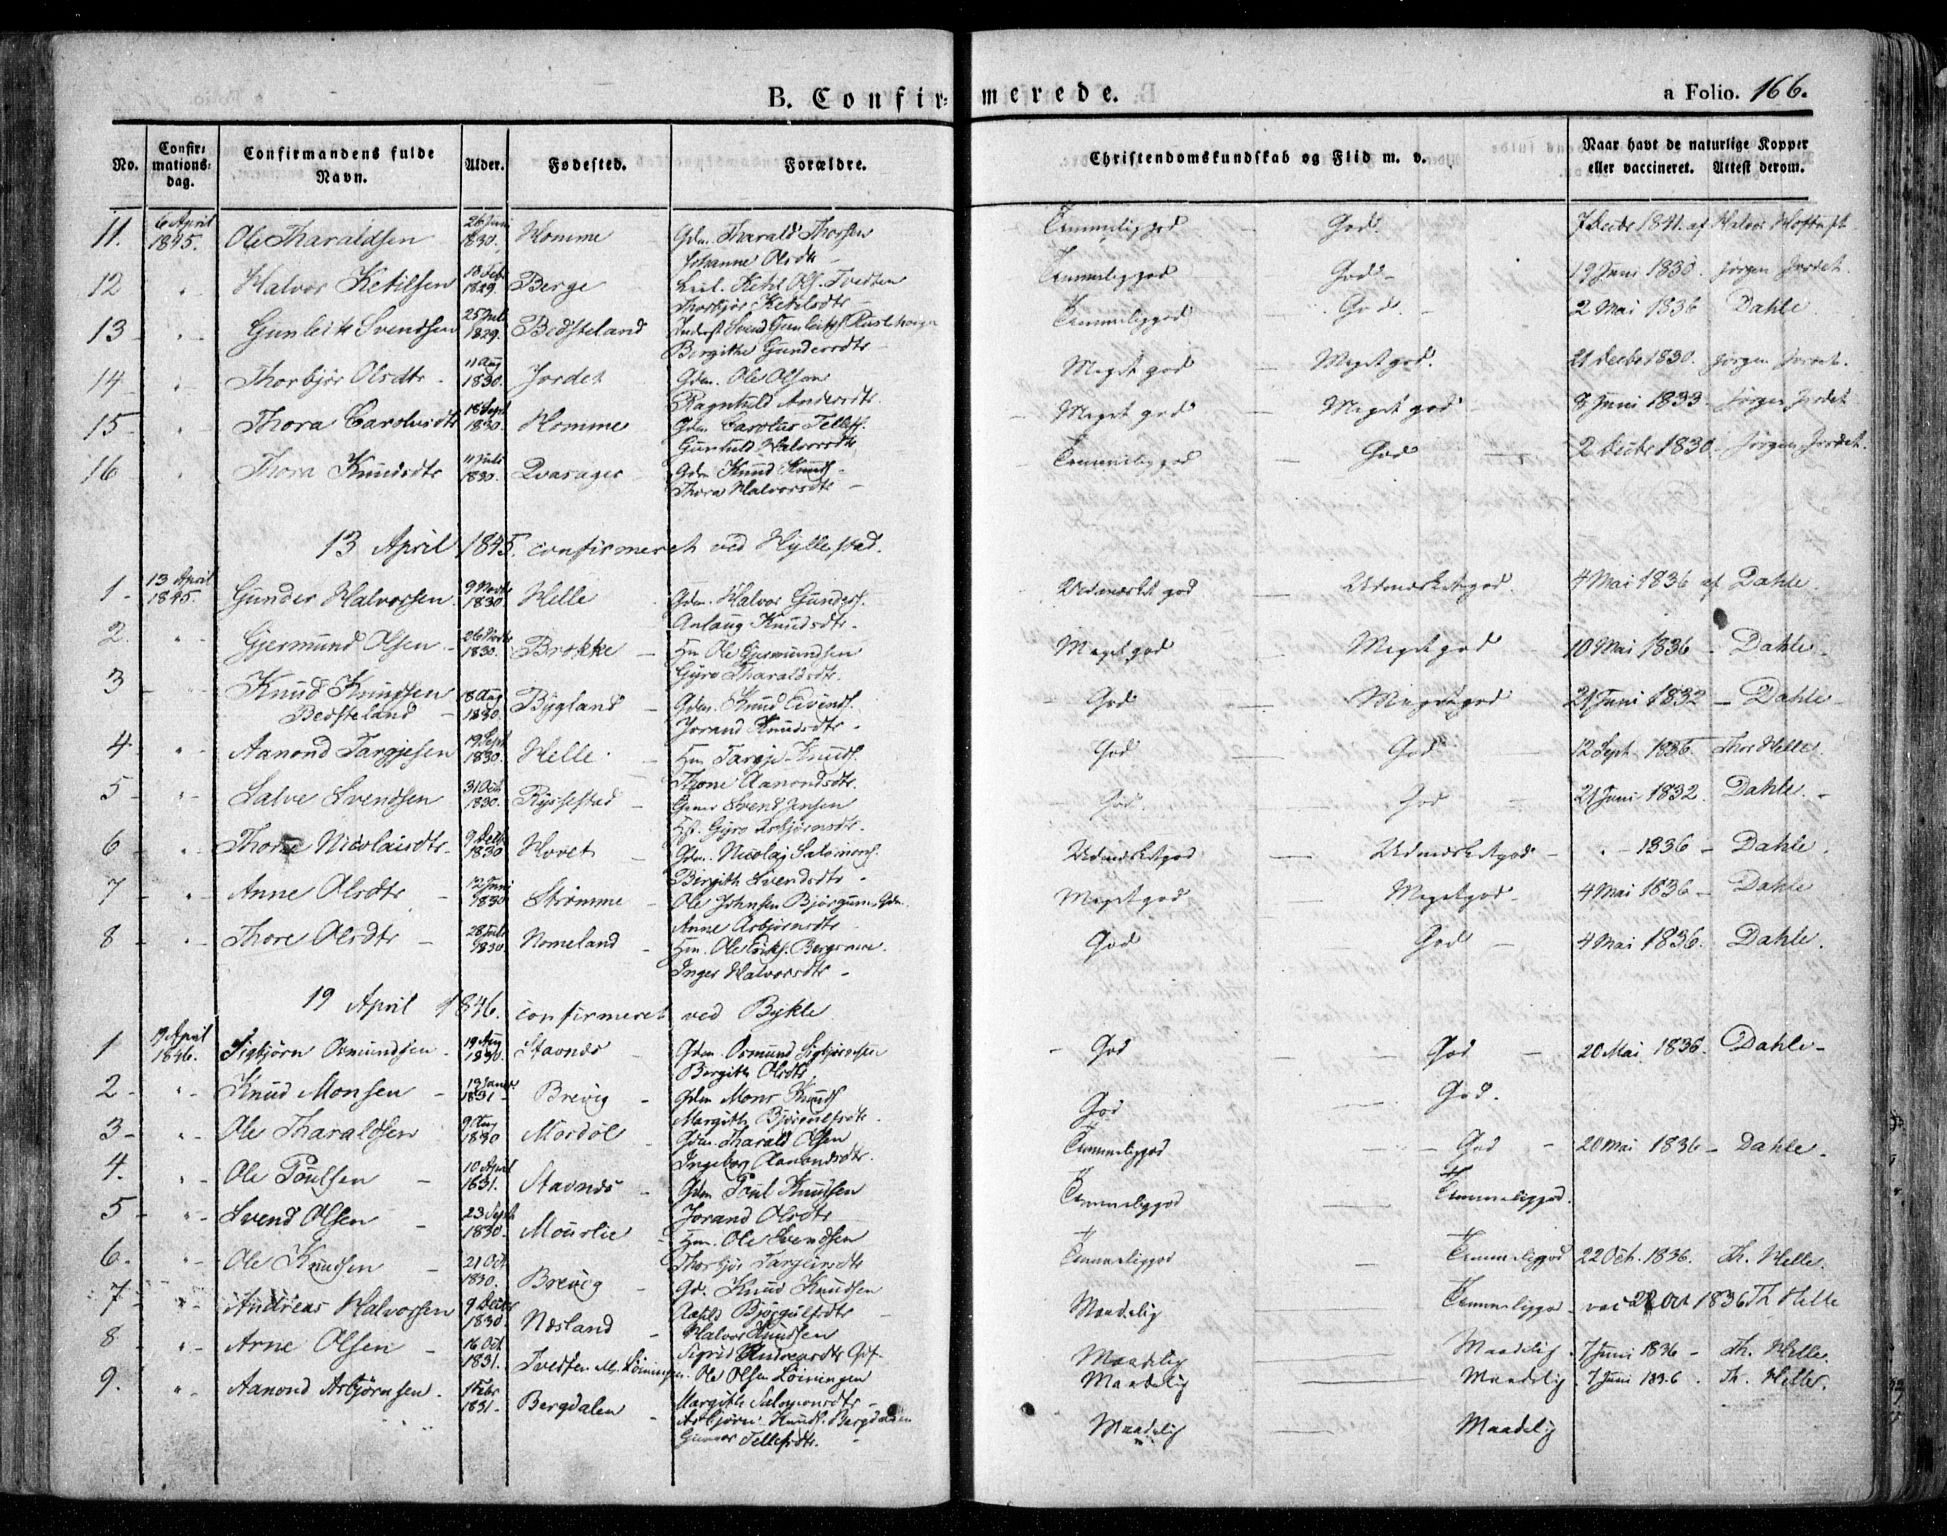 B. Confirmerede.
a Folio. 166.
No. Confirmationsdag. Confirmandens fulde Navn. Alder. Fødested. Forældre. Christendomskundskab og Flid m. v. Naar havt de naturlige Kopper eller vaccineret. Attest derom.
11. 6 April 1845. Ole Tharaldsen 26 Juni 1830. Homme Gdm. Tharald Thorsen Johanne Olsdtr - Temmelig god - God. 7 Decbr 1841. af Halvor
12 " - Halvor Ketilsen 18 Feb. 1829 Berge Ketil Ols. Tvedten Thorbjør Ketilsdtr - Temmelig god God - 19 Juni 1830. Jørgen Jordet.
13 - " - Gunleik Svendsen 25 Juli 1829. Bedsteland Svend Gunleiks. Bergithe Gundersdtr Temmelig god - God. 2 Mai 1836 Dahle.
14 - " Thorbjør Olsdtr - 11 Aug 1830. Jordet Gdm. Ole Olsen Ragnhild Andersdtr Meget god - Meget god. 21 Decbr 1830. Jørgen Jordet.
15 - " Thora Carolusdtr 18 Sept 1830. Homme Gdm. Carolus Tellefs. Gunhild Halvorsdtr - Meget god - Meget god 8 Juni 1833 - Jørgen Jordet
16 - " Thora Knudsdtr 11 Juli 1830. Qvasager - Gdm Knud Knuds. - Thora Halvorsdtr - Temmelig god - God - 2 Decbr 1830 - Jørgen Jordet.
13 April 1845. confirmeret ved Hyllestad.
1 - 13 April 1845. Gunder Halvorsen 9 Novbr 1830 Helle - Gdm. Halvor Gunders. Anlaug Knudsdtr. Udmærket god - Udmærket god. 4 Mai 1836 af Dahle.
2. " - Gjermund Olsen - 26 Novbr 1830. Brokke - Hm Ole Gjermundsen Gyro Tharaldsdtr. Meget god - Meget god 10 Mai 1836 - Dahle -
3 - " - Knud Knudsen Bedsteland - 18 Aug 1830. Bygland - Gdm. Knud Eivinds. Jorand Knudsdtr - God - Meget god 21 Juni 1832 - Dahle -
4 " - Aanond Targjesen 19 Sept 1830. Helle. - Hm Targje Knuds. Thone Aanondsdtr. God God 12 Sept. 1836. Thor Helle.
5 - " - Salve Svendsen 31 Oct 1830. Rysstad - Svend Jensen Gyro Asbjørnsdtr. God. - God 21 Juni 1832. Dahle. -
6 " - Thone Nicolaisdtr. 9 Decbr 1830 Hovet - Gdm. Nicolaj Salomons. Birgith Svendsdtr - Udmærket god - Udmærket god - " - 1836 - Dahle.
7 - " - Anne Olsdtr - 12 Juni 1830 Strømme - Ole Johnsen Bjørgum - Gdm. Anne Asbjørnsdtr - Meget god - Meget god - 4 Mai 1836 - Dahle
8 - " - Thore Olsdtr - 28 Juli 1830 Nomeland - Hm. Ole Eriks. Inger Halvorsdtr - God - God - 4 Mai 1836. Dahle.
19 April 1846. confirmeret ved Bykle.
1 19 April 1846. Sigbjørn Osmundsen - 19 Aug 1830. Stavnes - Gdm. Osmund Sigbjørnsen Bergith Olsdtr. - God - God - 20 Mai 1836. Dahle -
2 - " - Knud Monsen - 13 Januar 1831 - Brevig - Gdm Mons Knuds. Margith Bjørgulfsdtr. God - God.
3 - " - Ole Tharaldsen 9 Aug 1830 Mordøl - Gdm. Tharald Olsen Ingebor Aanondsdtr. Temmelig god - God - 20 Mai 1836 - Dahle -
4. " - Ole Poulsen - 10 April 1831. Stavnes - Gdm Poul Knudsen Jorand Olsdtr Temmelig god - Temmelig god.
5 - " - Svend Olsen - 23 Sept 1830. Mourlie - Hm. Ole Svendsen Thorbjør Targeirsdtr Temmelig god - Temmelig god 22 Oct. 1836. Th. Helle.
6. " - Ole Knudsen - 21 Oct 1830. Brevig - Gd. Knud Knudsen Aahld Bjørgulfsdtr - Maadelig Temmelig god - 22 Oct 1836 Th Helle
7 - " - Andreas Halvorsen 9 Decbr 1830. Næsland - Halvor Knudsen Sigrid Andreasdtr Maadelig Maadelig. 7 Juni 1836 - Th. Helle.
8 " - Arne Olsen - 16 Oct 1831. Tvedten Løiningen. Ole Olsen Løiningen Margith Salomonsdtr - Maadelig Maadelig 7 Juni 1836. Th. Helle.
9. " - Aanond Asbjørnsen. 1 Febr 1831. Bergdalen - Asbjørn Knuds. Bergdalen Gunvor Tellefsdtr. - Maadelig - Maadelig